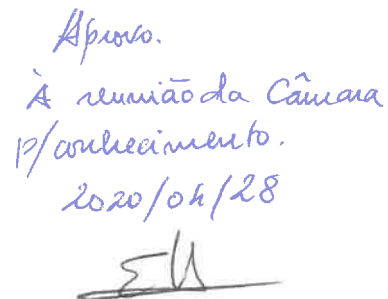 Aprovo.
À reunião da Câmara
p/conhecimento.
2020/04/28